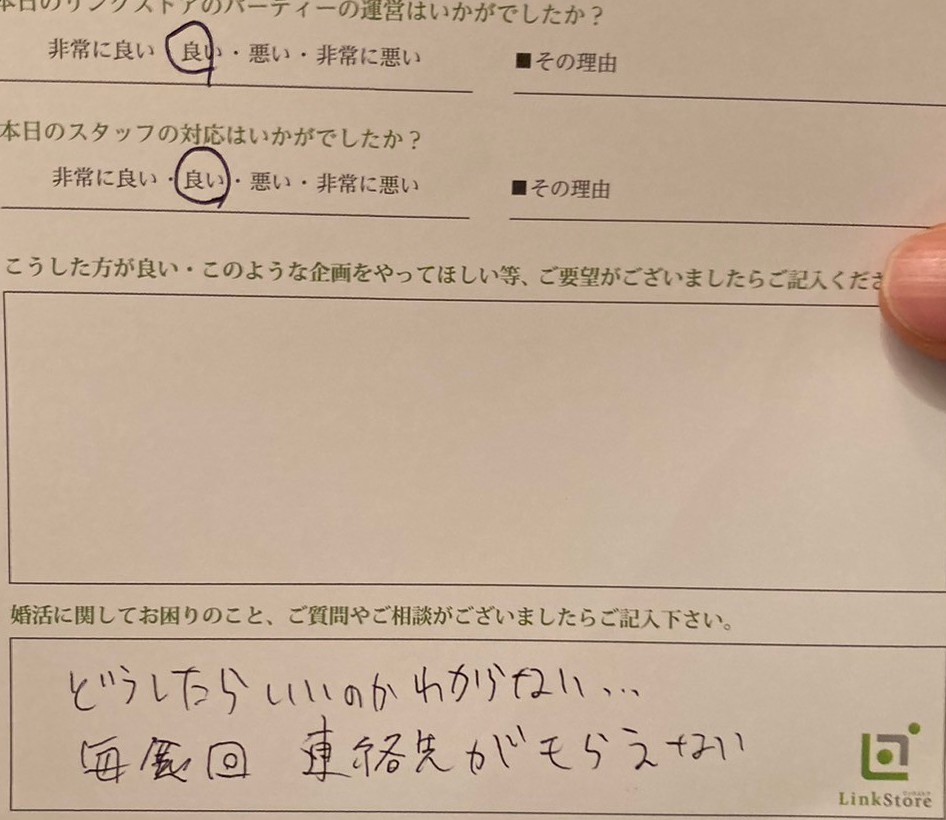 本日のリンクストアのパーティーの運営はいかがでしたか？
非常に良い 良い・悪い・非常に悪い ■その理由
本日のスタッフの対応はいかがでしたか？
非常に良い・良い・悪い・非常に悪い ■その理由
こうした方が良い・このような企画をやってほしい等、ご要望がございましたらご記入くださ
婚活に関してお困りのこと、ご質問やご相談がございましたらご記入下さい。
どうしたらいいのかわからない...
毎回 連絡先がもらえない
LinkStore